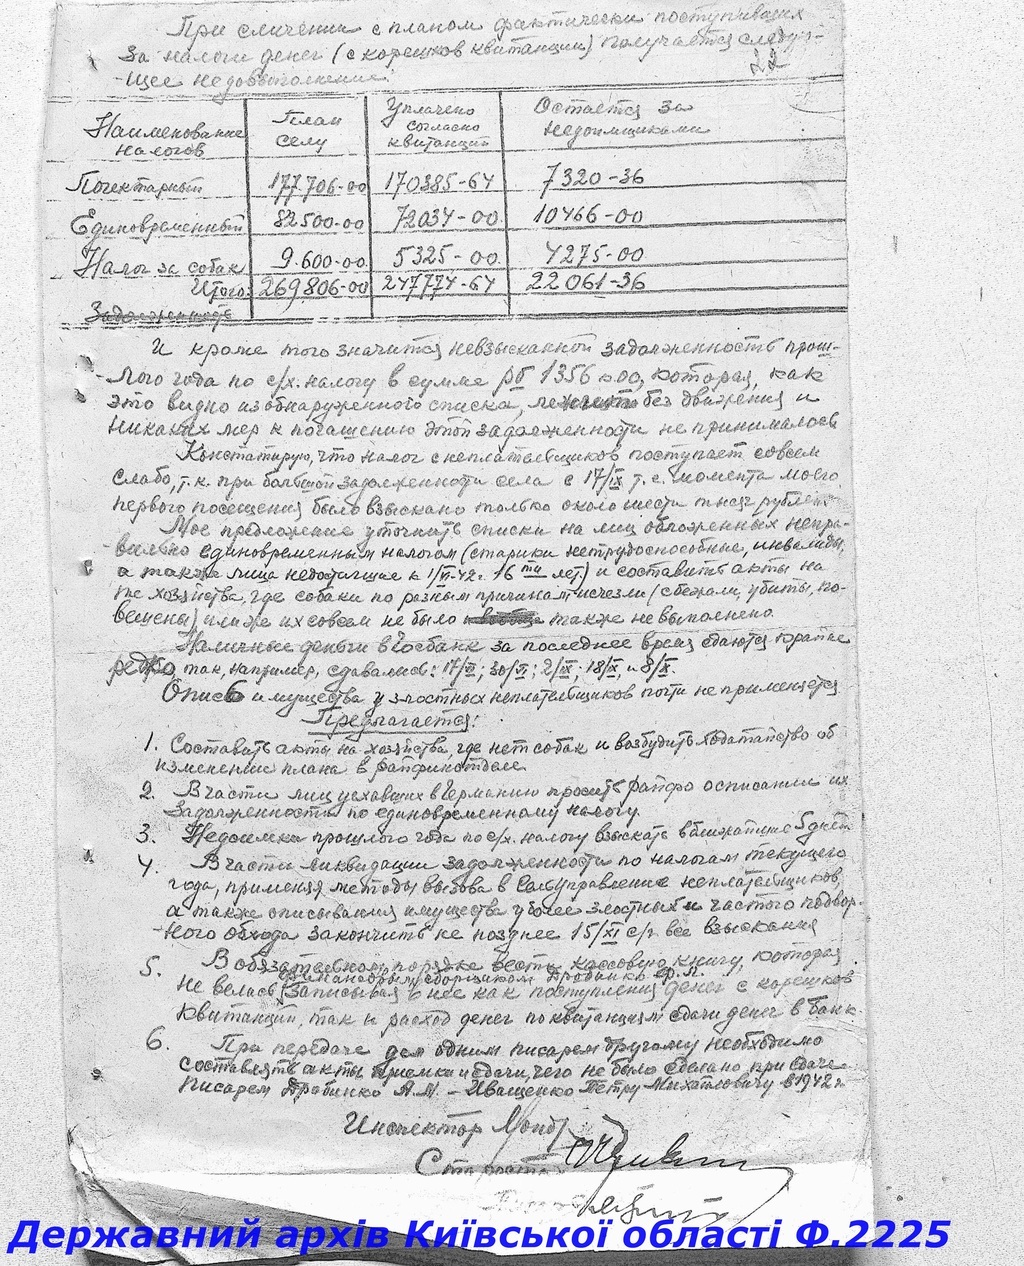 При сличении с планом фактически поступивших
за налоги денег (с корешков квитанции) получается следую-
-щее недовыполнение:
Наименование налогов | План селу | Уплачено согласно квитанций | Остается за недоимщиками
Погектарный | 177.706-00 | 170385-64 | 7320-36
Единовременный | 82500-00 | 72034-00 | 10466-00
Налог за собак | 9.600-00 | 5325-00 | 4275-00
Итого: | 269806-00 | 247774-64 | 22061-36
Задолженность
И кроме того значится невзысканной задолженность прош-
-лого года по с/х. налогу в сумме рб 1356 к.00, которая, как
это видно из обнаруженного списка, лежит без движения и
никаких мер к погашению этой задолженности не принималось
Констатирую, что налог с неплательщиков поступает совсем
слабо, т.к. при большой задолженности села с 17/IX т.е. с момента моего
первого посещения было взыскано только около шести тысяч рублей
Мое предложение уточнить списки на лиц обложенных непра-
-вильно единовременным налогом (старики нетрудоспособные, инвалиды,
а также лица недостигшие к 1/VI-42г. 16ти лет) и составить акты на
те хозяйства, где собаки по разным причинам исчезли (сбежали, убиты, по-
вешены) или же их совсем не было также не выполнено.
Наличные деньги в Госбанк за последнее время сдаются крайне
редко, так, например, сдавались: 17/ ; 30/ ; 2/IX; 18/IX, и 8/X.
Опись имущества у злостных неплательщиков почти не применяется
Предлагается:
1. Составить акты на хозяйства, где нет собак и возбудить ходатайство об
изменении плана в райфинотделе
2. В части лиц уехавших в Германию просить райфо о списании их
задолженности по единовременному налогу.
3. Недоимка прошлого года по с/х. налогу взыскать в ближайшие 5 дней
4. В части ликвидации задолженности по налогам текущего
года, применяя методы вызова в Сельуправление неплательщиков,
а также описывания имущества у более злостных и частого подвор-
-ного обхода закончить не позднее 15/XI с/г. все взыскания
5. В обязательном порядке вести кассовую книгу, которая
финансовым сборщиком Дробинко
не велась, записывая в нее как поступления денег с корешков
квитанции, так и расход денег по квитанциям сдачи денег в банк
6. При передаче дел одним писарем другому необходимо
составлять акты приемки и сдачи, чего не было сделано при сдаче
писарем Дробинко А.М. - Иващенко Петру Михайловичу в 1942 г.
Инспектор
Староста
Державний архів Київської області Ф.2225